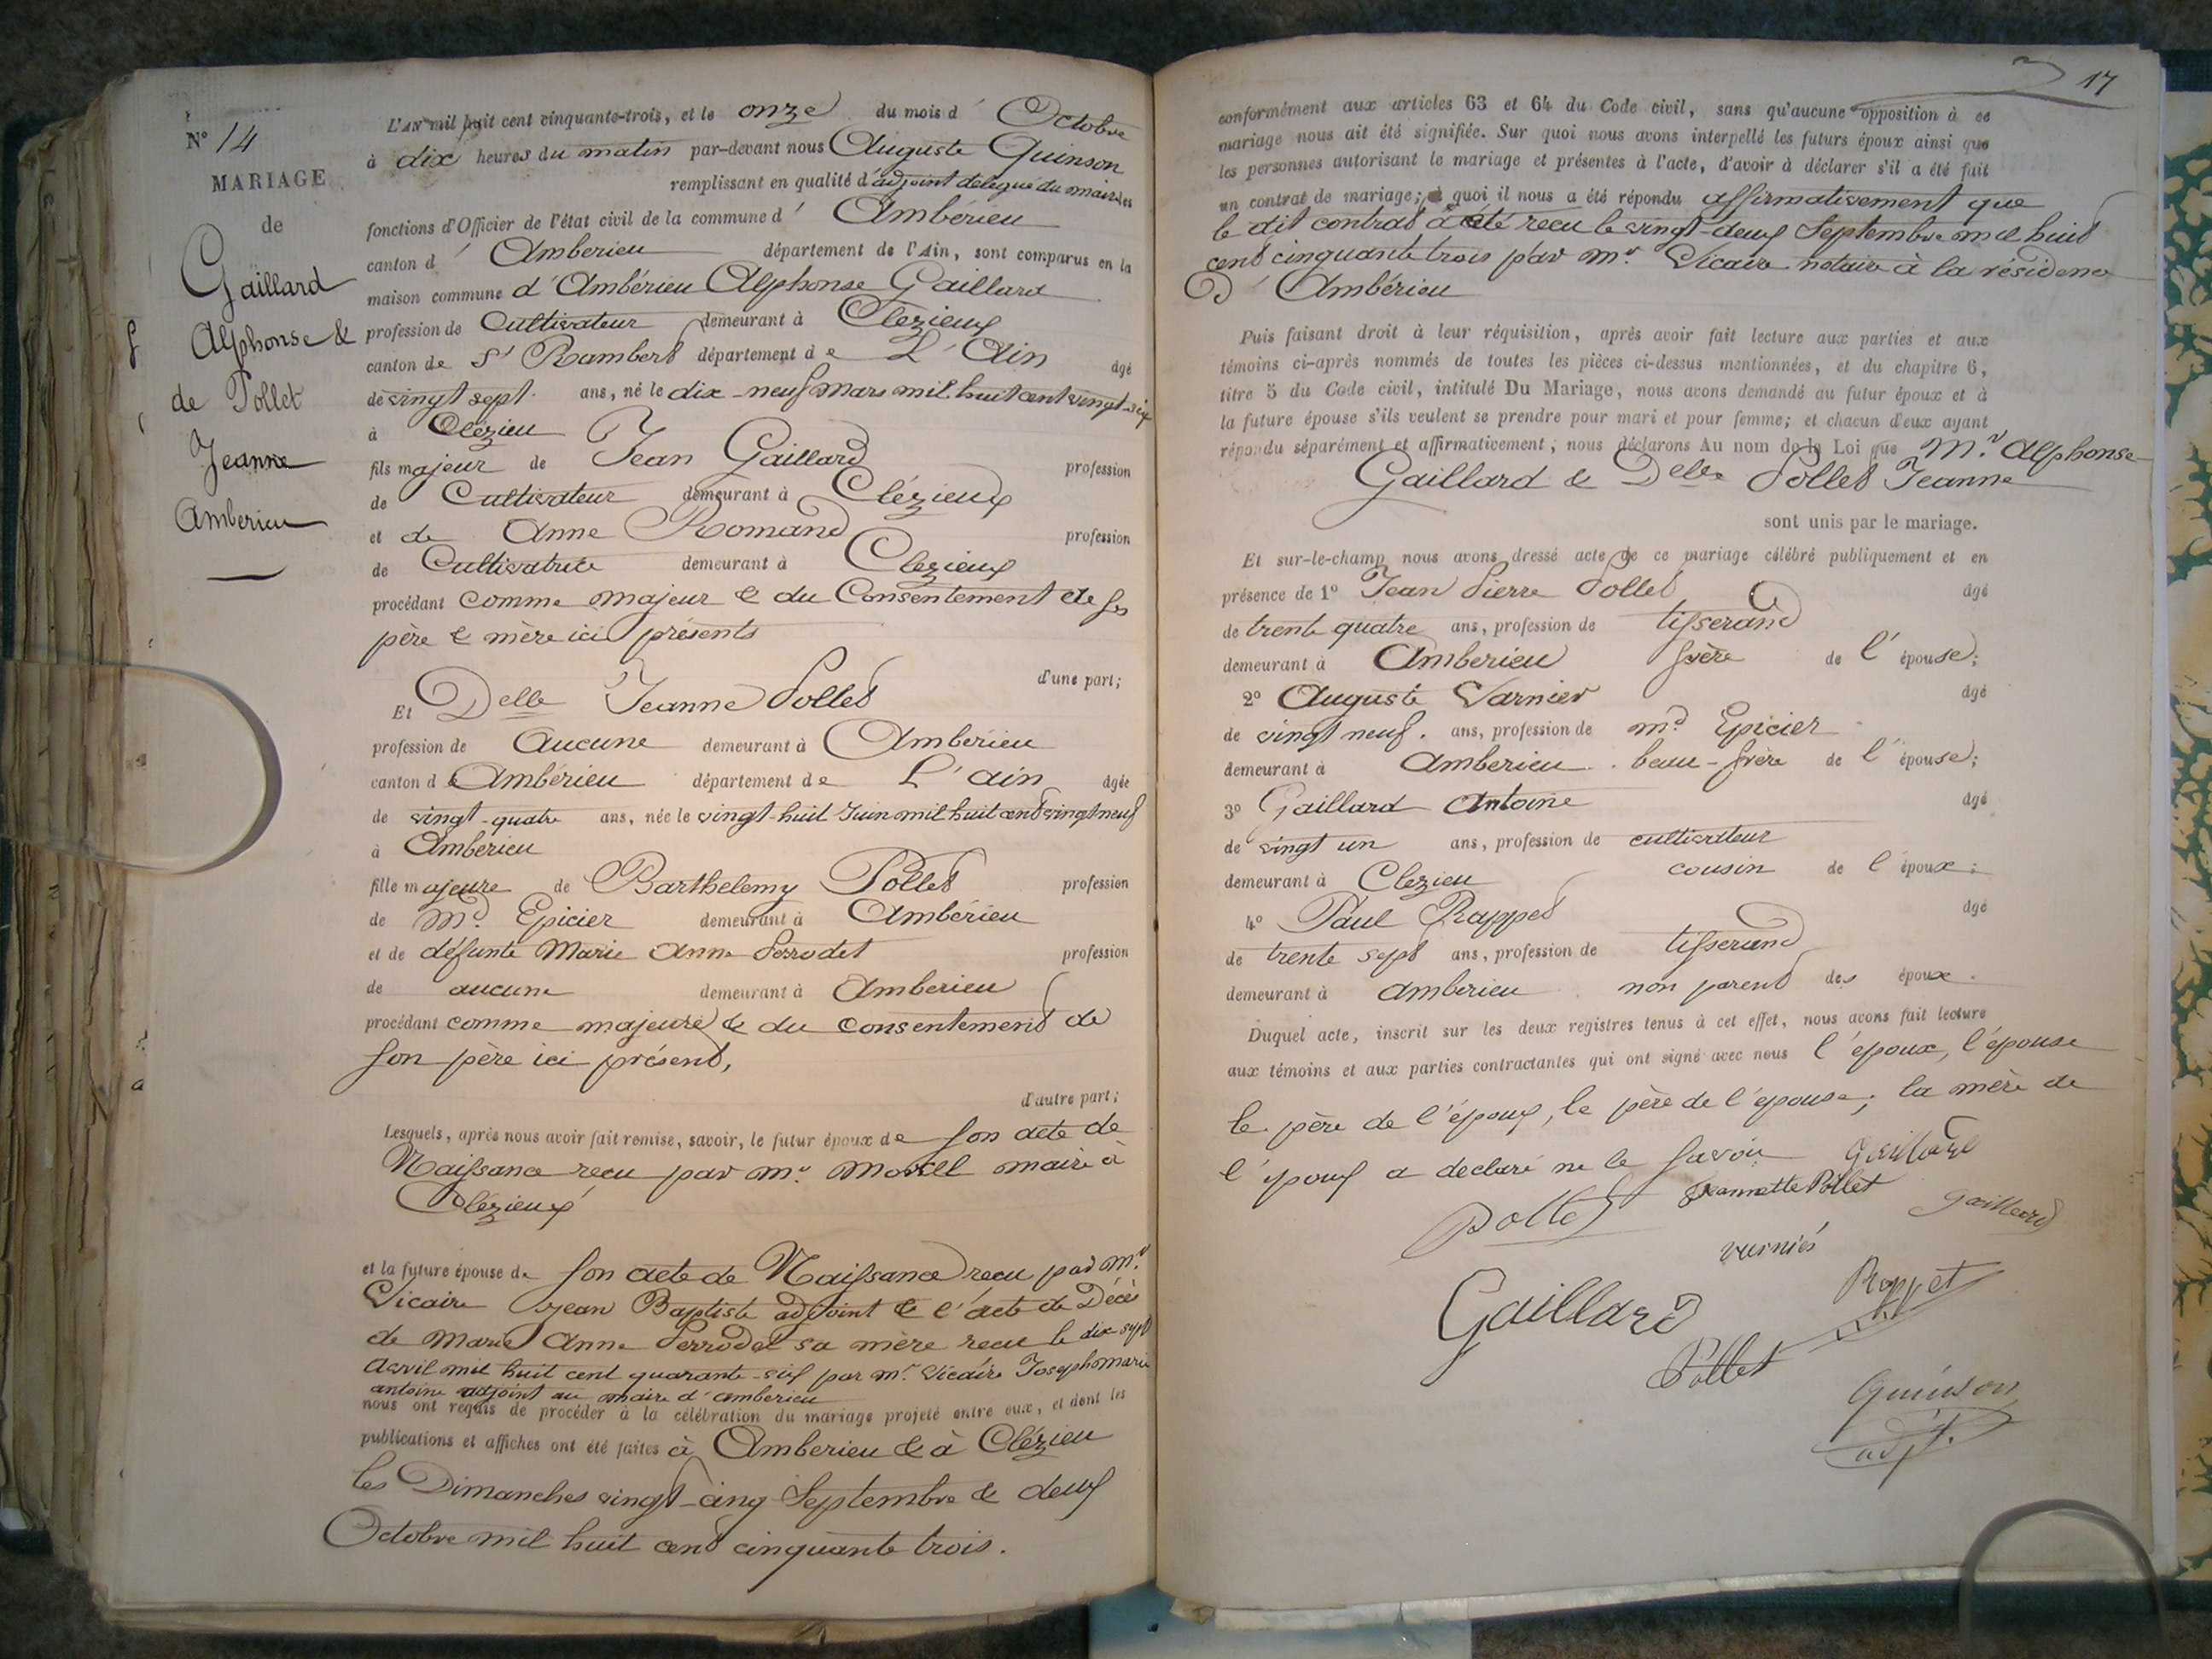 N° 14
MARIAGE
de
Gaillard
Alphonse &
de Pollet
Jeanne
Amberieu
L'AN mil huit cent cinquante-trois, et le onze du mois d' Octobre
à dix heures du matin par-devant nous Auguste Quinson
remplissant en qualité d'adjoint délégué du maire les
fonctions d'Officier de l'état civil de la commune d' Ambérieu
canton d' Amberieu département de l'Ain, sont comparus en la
maison commune d'Ambérieu Alphonse Gaillard
profession de Cultivateur demeurant à Clezieux
canton de St Rambert département de L'Ain âgé
de vingt sept ans, né le dix-neuf Mars mil huit cent vingt-six
à Clézieu
fils majeur de Jean Gaillard profession
de Cultivateur demeurant à Clézieux
et de Anne Romand profession
de Cultivatrice demeurant à Clezieux
procédant comme majeur & du Consentement de ses
père & mère ici présents
d'une part;
Et Delle Jeanne Pollet
profession de Aucune demeurant à Amberieu
canton de Ambérieu département de L'ain âgée
de vingt-quatre ans, née le vingt-huit Juin mil huit cent vingt neuf
à Ambérieu
fille majeure de Barthelemy Pollet profession
de Md. Epicier demeurant à Ambérieu
et de défunte Marie Anne Perrodet profession
de aucune demeurant à Amberieu
procédant comme majeure & du consentement de
son père ici présent,
d'autre part;
Lesquels, après nous avoir fait remise, savoir, le futur époux de son acte de
Naissance recu par Mr. Morel maire à
Clézieux
et la future épouse de son acte de Naissance recu par Mr.
Vicaire Jean Baptiste adjoint & l'acte de Décès
de Marie Anne Perrodet sa mère recu le dix sept
Avril mil huit cent quarante-six par Mr. Vicaire Joseph Marie
antoine adjoint au maire d'amberieu
nous ont requis de procéder à la célébration du mariage projeté entre eux, et dont les
publications et affiches ont été faites à Amberieu & à Clézieu
les Dimanches vingt-cinq Septembre & deux
Octobre mil huit cent cinquante trois.
17
conformément aux articles 63 et 64 du Code civil, sans qu'aucune opposition à ce
mariage nous ait été signifiée. Sur quoi nous avons interpellé les futurs époux ainsi que
les personnes autorisant le mariage et présentes à l'acte, d'avoir à déclarer s'il a été fait
un contrat de mariage; à quoi il nous a été répondu affirmativement que
le dit contrat à été recu le vingt-deux Septembre mil huit
cent cinquante trois par Mr. Vicaire notaire à la résidence
D' Ambérieu
Puis faisant droit à leur réquisition, après avoir fait lecture aux parties et aux
témoins ci-après nommés de toutes les pièces ci-dessus mentionnées, et du chapitre 6,
titre 5 du Code civil, intitulé Du Mariage, nous avons demandé au futur époux et à
la future épouse s'ils veulent se prendre pour mari et pour femme; et chacun d'eux ayant
répondu séparément et affirmativement, nous déclarons Au nom de la Loi que Mr. Alphonse
Gaillard & Delle Pollet Jeanne
sont unis par le mariage.
Et sur-le-champ nous avons dressé acte de ce mariage célébré publiquement et en
présence de 1° Jean Pierre Pollet âgé
de trente quatre ans, profession de tisserand
demeurant à Amberieu frère de l'épouse;
2° Auguste Varnier âgé
de vingt neuf. ans, profession de md Epicier
demeurant à Amberieu beau-frère de l'épouse;
3° Gaillard Antoine âgé
de vingt un ans, profession de cultivateur
demeurant à Clezieu cousin de l'époux;
4° Paul Rappet âgé
de trente sept ans, profession de tisserand
demeurant à amberieu non parent des époux.
Duquel acte, inscrit sur les deux registres tenus à cet effet, nous avons fait lecture
aux témoins et aux parties contractantes qui ont signé avec nous l'époux, l'épouse
le père de l'époux, le père de l'épouse; la mère de
l'époux a declaré ne le savoir Gaillard
Pollet Jeannette Pollet Gaillard
varnié
Gaillard Rappet
Pollet
Quinson
adjt.